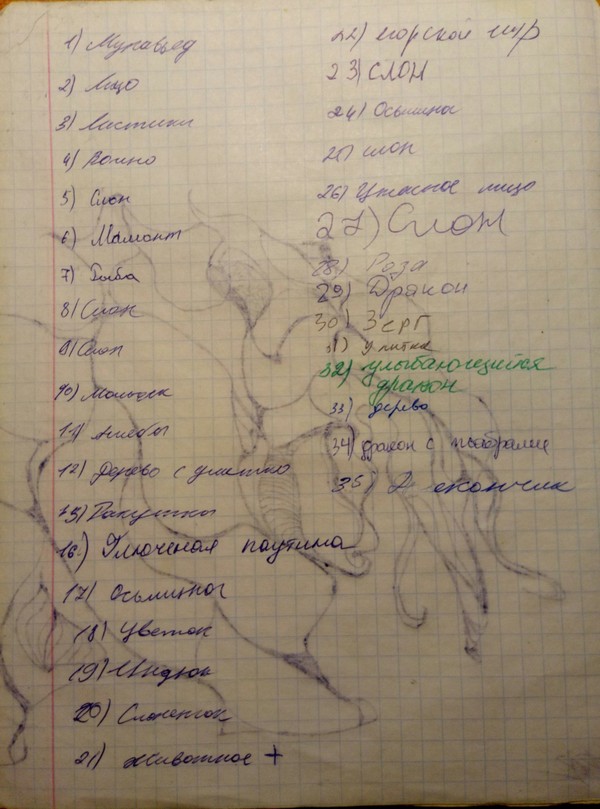 1) Муравьед
2) Лицо
3) Листики
4) Домино
5) Слон
6) Мамонт
7) Рыба
8) Слон
9) Слон
10) Мольюск
11) Амёбы
12) Дерево с
15) Ракушки
16) Глюченая паутина
17) Осьминог
18) Цветок
19) Индюк
20) Слоненок
21) животное +
22) морской
23) СЛОН
24) Осьминог
25) слон
26) Ужасное лицо
27) Слон
28) Роза
29) Дракон
30) Зерг
31) улитка
32) улыбающийся
дракон
33) дерево
34) дракон с
35)